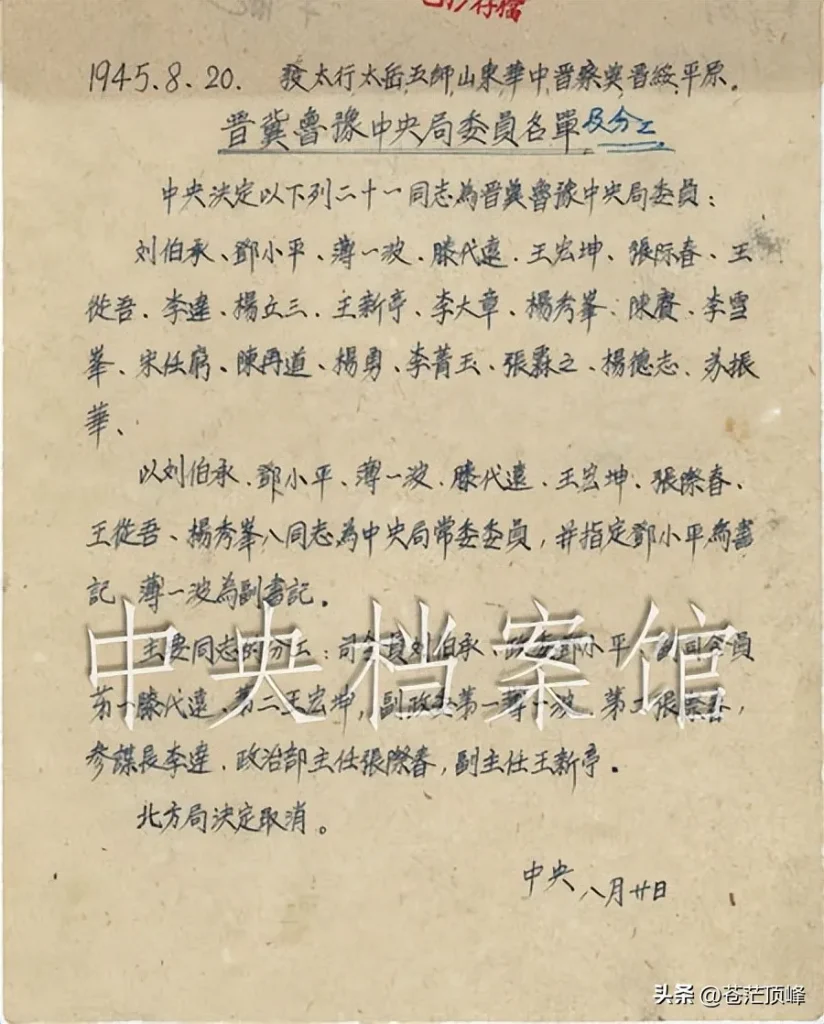 已抄存檔
1945.8.20. 發太行太岳,五師,山東,華中,晋察冀,晋綏,平原。
晋冀魯豫中央局委員名單及分工
中央決定以下列二十一同志為晋冀魯豫中央局委員：
刘伯承、鄧小平、薄一波、滕代遠、王宏坤、張际春、王
從吾、李達、楊立三、王新亭、李大章、楊秀峯、陳賡、李雪
峯、宋任窮、陳再道、楊勇、李菁玉、張霖之、楊德志、苏振
華、
以刘伯承、鄧小平、薄一波、滕代遠、王宏坤、張際春、
王從吾、楊秀峯八同志為中央局常委委員，并指定鄧小平為書
記 薄一波為副書記。
主要同志的分工：司令員刘伯承、政委鄧小平、副司令員
第一滕代遠、第二王宏坤，副政委第一薄一波、第二張際春，
參謀長李達、政治部主任張際春，副主任王新亭。
北方局決定取消。
中央 八月廿日
中央档案馆
头条 @苍茫顶峰